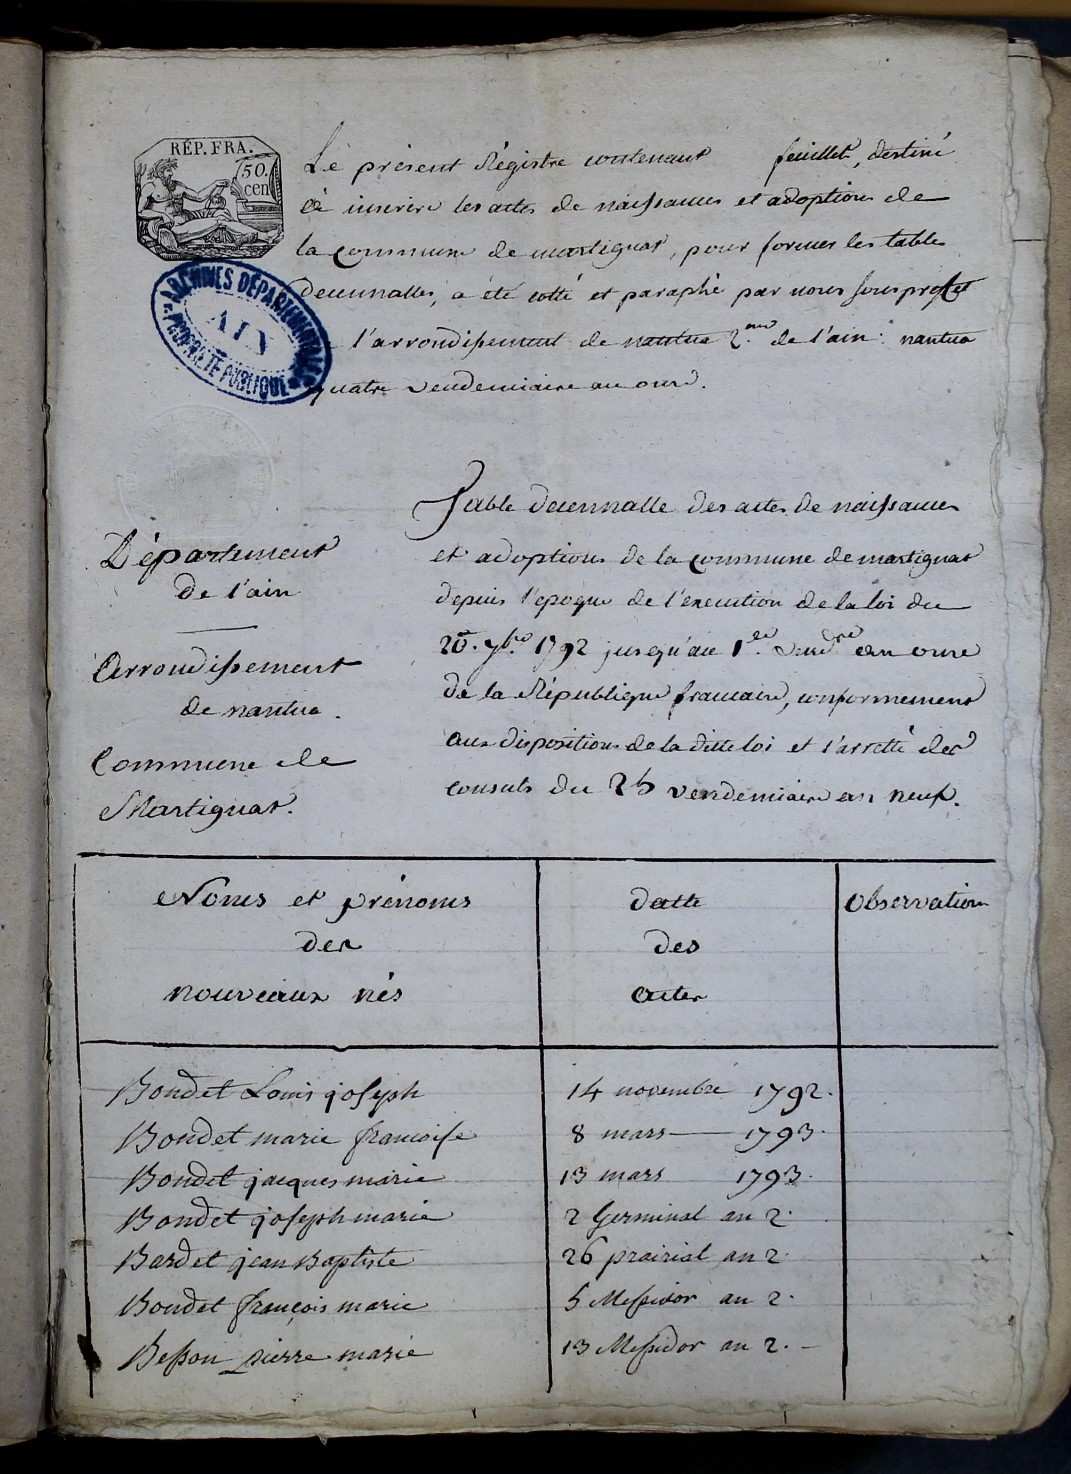 RÉP. FRA.
50.
cen
Le présent Régistre contenant feuillet, destiné
à inscrire les actes de naissances et adoptions de
la commune de martignat, pour former les tables
decennalles, a été cotté et paraphé par nous sous prefet
l'arrondissement de nantua 2.me de l'ain. nantua
quatre vendemiaire an onze.
ARCHIVES DÉPARTEMENTALES
AIN
PROPRIÉTÉ PUBLIQUE
Table decennalle des actes de naissances
et adoptions de la commune de martignat
depuis l'epoque de l'execution de la loi du
20. 7bre 1792 jusqu'au 1.er vend.re an onze
de la République francaise, conformement
aux dispositions de la ditte loi et l'arretté des
consuls du 25 vendemiaire an neuf.
Département
de l'ain
Arrondissement
de nantua.
Commune de
Martignat.
Noms et prénoms
des
nouveaux nés
datte
des
actes
Observations
Bondet Louis joseph 14 novembre 1792.
Bondet marie francoise 8 mars — 1793.
Bondet jacques marie 13 mars 1793.
Bondet joseph marie 2 Germinal an 2.
Bardet jean Baptiste 26 prairial an 2.
Bondet françois marie 5 Messidor an 2.
Besson pierre marie 13 Messidor an 2. –